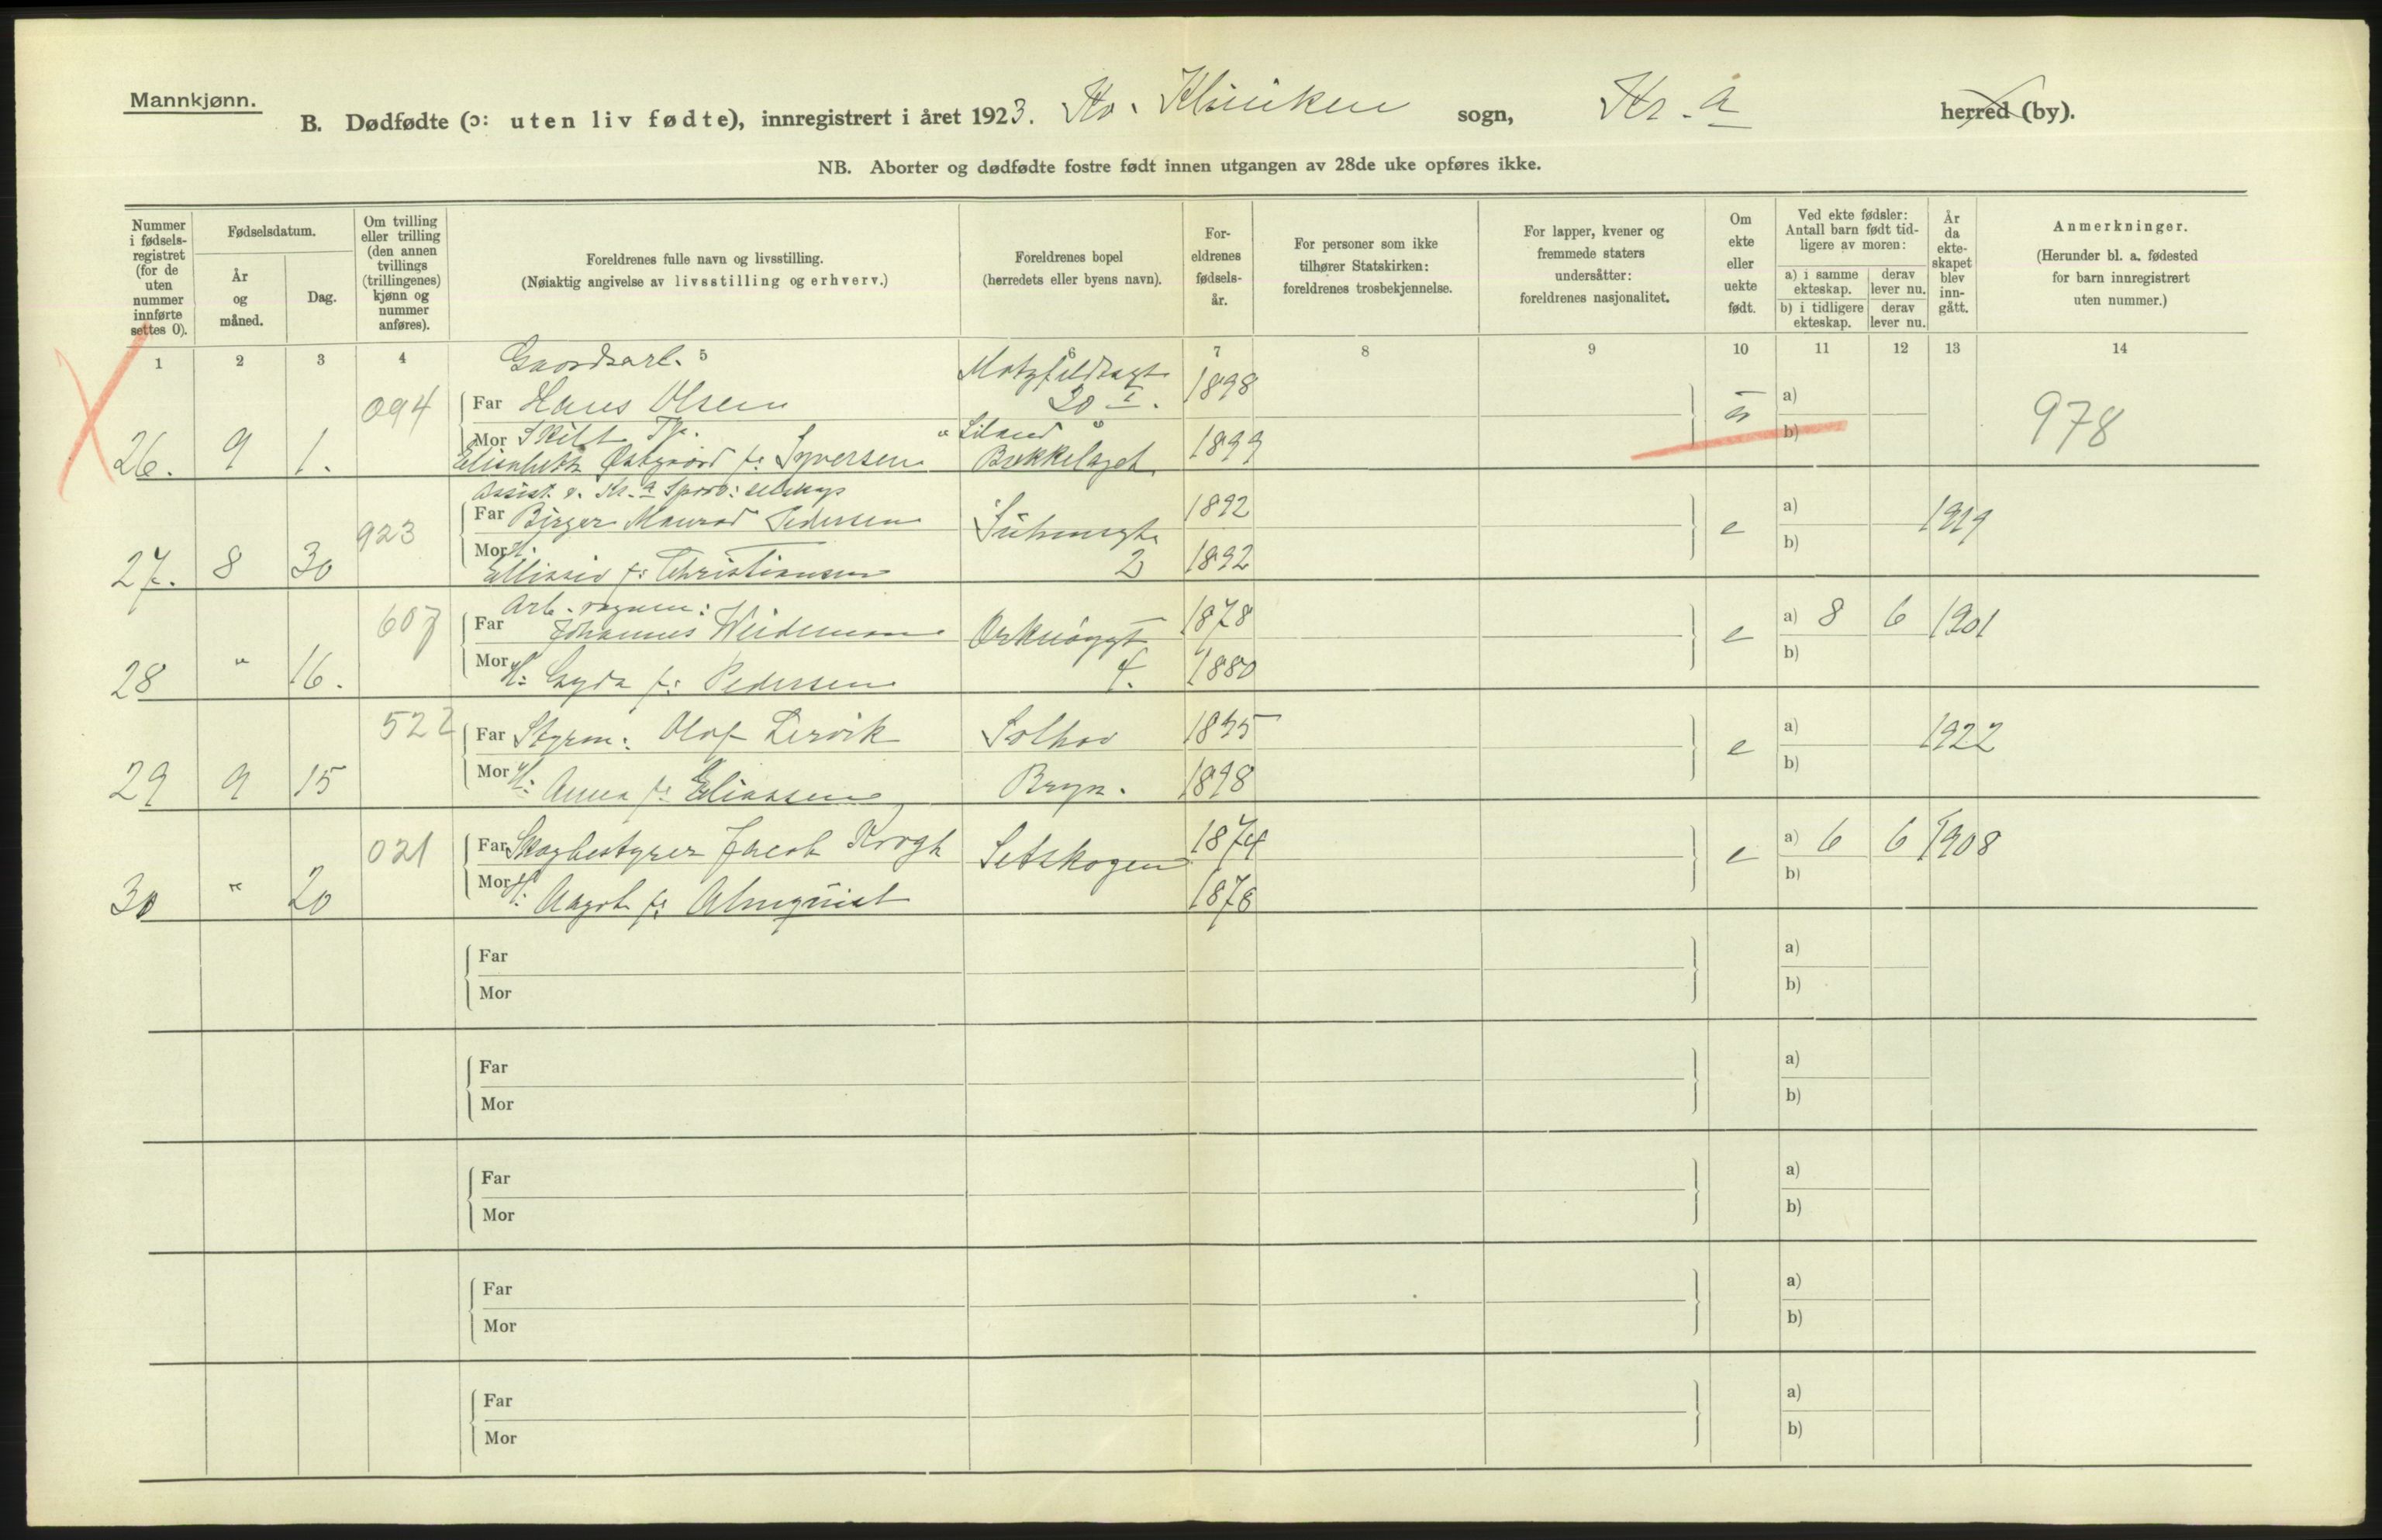 Mannkjønn.
B. Dødfødte (ɔ: uten liv fødte), innregistrert i året 1923. Kv. Kliniken sogn, Kr.a herred (by).
NB. Aborter og dødfødte fostre født innen utgangen av 28de uke opføres ikke.
Nummer i fødsels-registret (for de uten nummer innførte settes 0).
Fødselsdatum.
År og måned.
Dag.
Om tvilling eller trilling (den annen tvillings (trillingenes) kjønn og nummer anføres).
Foreldrenes fulle navn og livsstilling.
(Nøiaktig angivelse av livsstilling og erhverv.)
Foreldrenes bopel
(herredets eller byens navn).
For-eldrenes fødsels-år.
For personer som ikke tilhører Statskirken: foreldrenes trosbekjennelse.
For lapper, kvener og fremmede staters undersåtter: foreldrenes nasjonalitet.
Om ekte eller uekte født.
Ved ekte fødsler: Antall barn født tid-ligere av moren:
a) i samme ekteskap. derav lever nu.
b) i tidligere ekteskap. derav lever nu.
År da ekte-skapet blev inn-gått.
Anmerkninger.
(Herunder bl. a. fødested for barn innregistrert uten nummer.)
1 2 3 4 5 6 7 8 9 10 11 12 13 14
Gaardsarb. Motzfeldtsgt.
094 Far Hans Olsen 20 I. 1898 a)
Mor
26. 9 1. Elisabeth Østgaard f: Syversen Bækkelaget 1899 b) 978
Assist. v. Kr.a Sporv: selskap
923 Far Birger Pedersen Suhmsgt. 1892 e a) 1919
Mor H.
27. 8 30 f: Christiansen 2 1892 b)
607 Arb.
Far Johannes Weideman Orknøygt 1878 e a) 8 6 1901
28 " 16. Mor H: Gyda f: Pedersen 4. 1880 b)
522 Far Styrm: Olaf Lervik Solhov 1895 e a) 1922
29 9 15 Mor H: Anna f: Eliassen Bryn. 1898 b)
021 Far Skogbestyrer Jacob Krogh Setskogen 1874 e a) 6 6 1908
30 " 20 Mor H: Aagot f: Almquist 1878 b)
Far a)
Mor b)
Far a)
Mor b)
Far a)
Mor b)
Far a)
Mor b)
Far a)
Mor b)